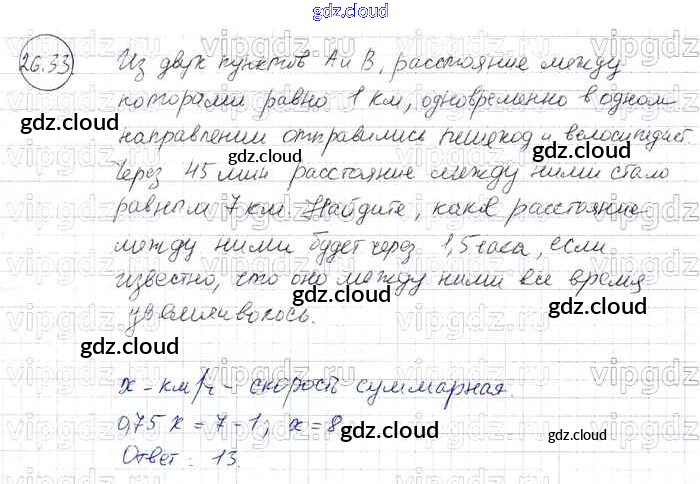 gdz.cloud
26.33.
Из двух пунктов А и В, расстояние между
которами равно 1 км, одновременно в одном
gdz.cloud
направлении отправились пешеход и велосипедист.
gdz.cloud
gdz.cloud
Через 45 мин расстояние между ними стало
равным 7 км. Найдите, какое расстояние
gdz.cloud
между ними будет через 1,5 часа, если
известно, что оно между ними все время
gdz.cloud
увеличивалось.
gdz.cloud
gdz.cloud
x - км/ч - скорость суммарная.
0,75 x = 7 - 1; x = 8
gdz.cloud
Ответ: 13.
gdz.cloud